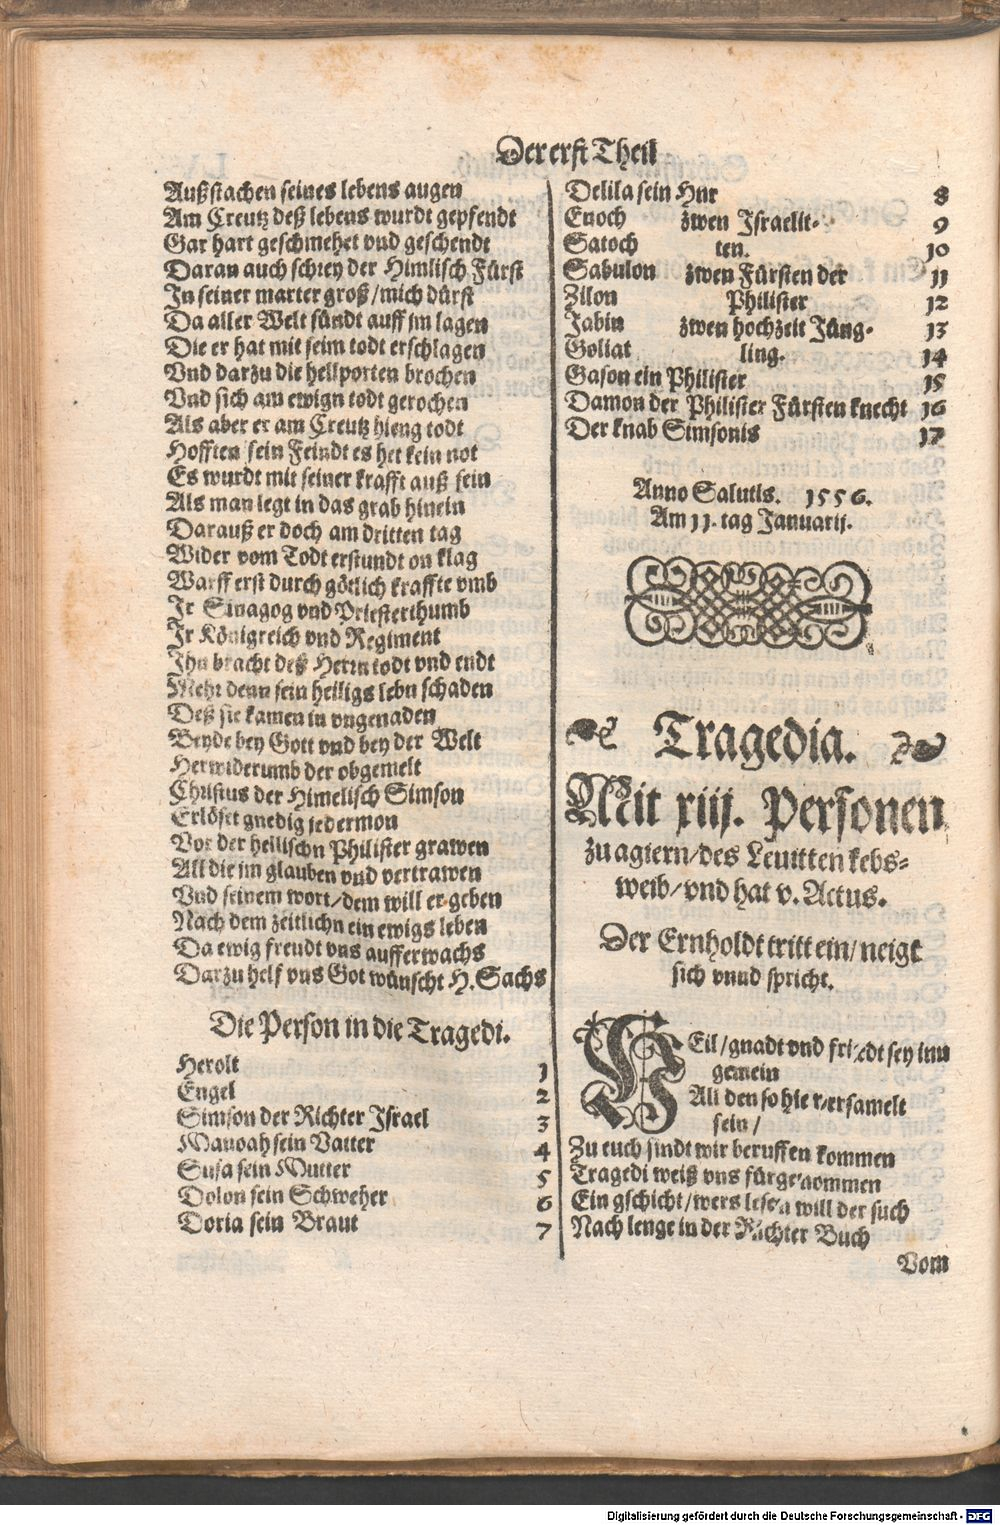 Der erst Theil
Außstachen seines lebens augen
Am Creutz deß lebens wurdt gepfendt
Gar hart geschmehet vnd geschendt
Daran auch schrey der Himlisch Fürst
In seiner marter groß/mich dürst
Da aller Welt sündt auff jm lagen
Die er hat mit seim todt erschlagen
Vnd darzu die hellporten brochen
Vnd sich am ewign todt gerochen
Als aber er am Creutz hieng todt
Hofften sein Feindt es het kein not
Es wurdt mit seiner krafft auß sein
Als man legt in das grab hinein
Darauß er doch am dritten tag
Wider vom Todt erstundt on klag
Warff erst durch götlich kraffte vmb
Ir Sinagog vnd Priesterthumb
Ir Königreich vnd Regiment
Ihn bracht deß Herrn todt vnd endt
Mehr denn sein heiligs lebn schaden
Deß sie kamen in vngenaden
Beyde bey Gott vnd bey der Welt
Herwiderumb der obgemelt
Christus der Himelisch Simson
Erlöset gnedig jedermon
Vor der hellischn Philister grawen
All die jm glauben vnd vertrawen
Vnd seinem wort/dem will er geben
Nach dem zeitlichn ein ewigs leben
Da ewig freudt vns aufferwachs
Darzu helf vns Got wünscht H. Sachs
Die Person in die Tragedi.
Herolt 1
Engel 2
Simson der Richter Israel 3
Manoah sein Vatter 4
Susa sein Mutter 5
Dolon sein Schweher 6
Doria sein Braut 7
Delila sein Hur 8
Enoch zwen Israelit- 9
Satoch ten. 10
Sabulon zwen Fürsten der 11
Zilon Philister 12
Jabin zwen hochzeit Jüng- 13
Goliat ling. 14
Gason ein Philister 15
Damon der Philister Fürsten knecht 16
Der knab Simsonis 17
Anno Salutis. 1556.
Am 11. tag Januarij.
Tragedia.
Mit xiij. Personen
zu agiern/des Leuitten kebs-
weib/vnd hat v. Actus.
Der Ernholdt tritt ein/neigt
sich vnnd spricht.
HEil/gnadt vnd friedt sey inn
gemein
All den so hie versamelt
sein/
Zu euch sindt wir beruffen kommen
Tragedi weiß vns fürgenommen
Ein gschicht/wers lesen will der such
Nach lenge in der Richter Buch
Vom
Digitalisierung gefördert durch die Deutsche Forschungsgemeinschaft - DFG